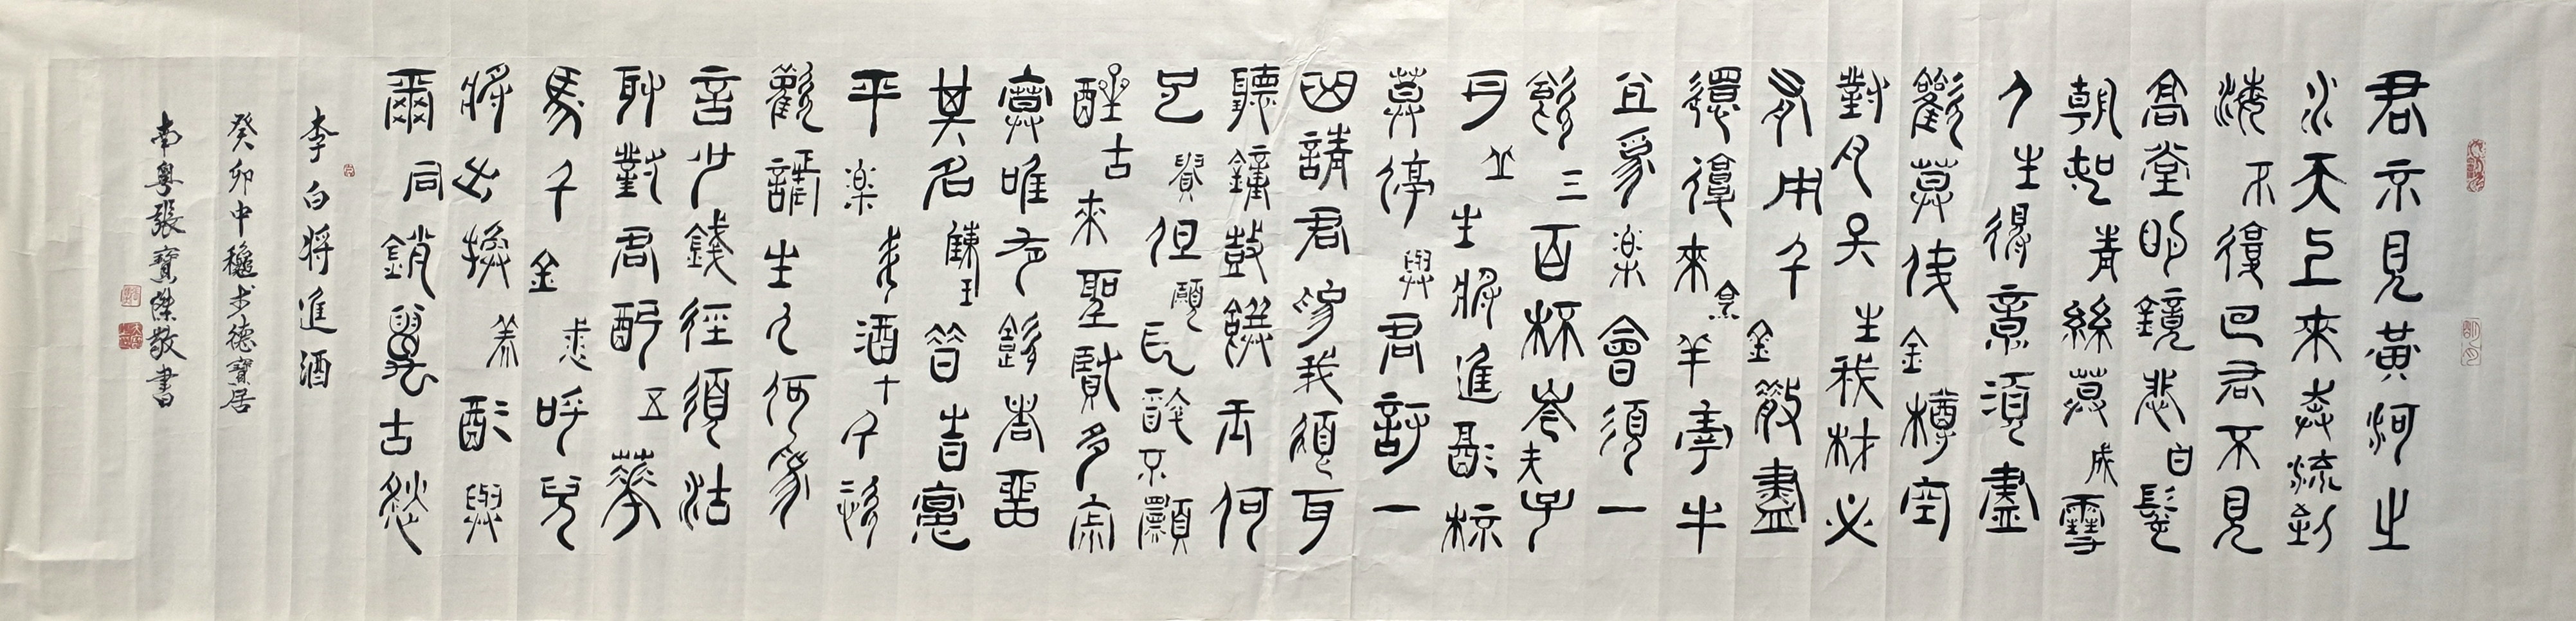 君不見黃河之
水天上來奔流到
海不復回君不見
高堂明鏡悲白髮
朝如青絲暮成雪
人生得意須盡
歡莫使金樽空
對月天生我材必
有用千金散盡
還復來烹羊宰牛
且為樂會須一
飲三百杯岑夫子
丹丘生將進酒杯
莫停與君歌一
曲請君為我傾耳
聽鐘鼓饌玉何
足貴但願長醉不願
醒古來聖賢多寂
寞唯有飲者留
其名陳王昔時宴
平樂斗酒十千恣
歡謔主人何為
言少錢徑須沽
取對君酌五華
馬千金裘呼兒
將出換美酒與
爾同銷萬古愁
李白将進酒
癸卯中龝步德寶居
南粵張寶傑敬書